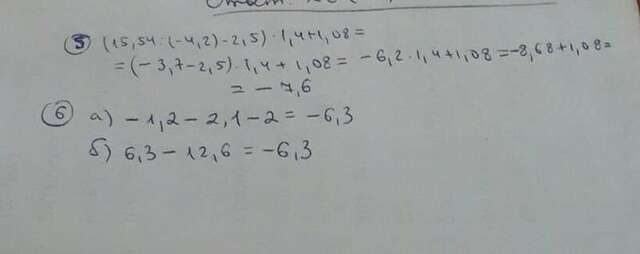 ⑤ (15,54 : (-4,2) - 2,5) · 1,4 + 1,08 =
= (- 3,7 - 2,5) · 1,4 + 1,08 = - 6,2 · 1,4 + 1,08 = -8,68 + 1,08 =
= - 7,6
⑥ а) - 1,2 - 2,1 - 2 = - 6,3
б) 6,3 - 12,6 = - 6,3